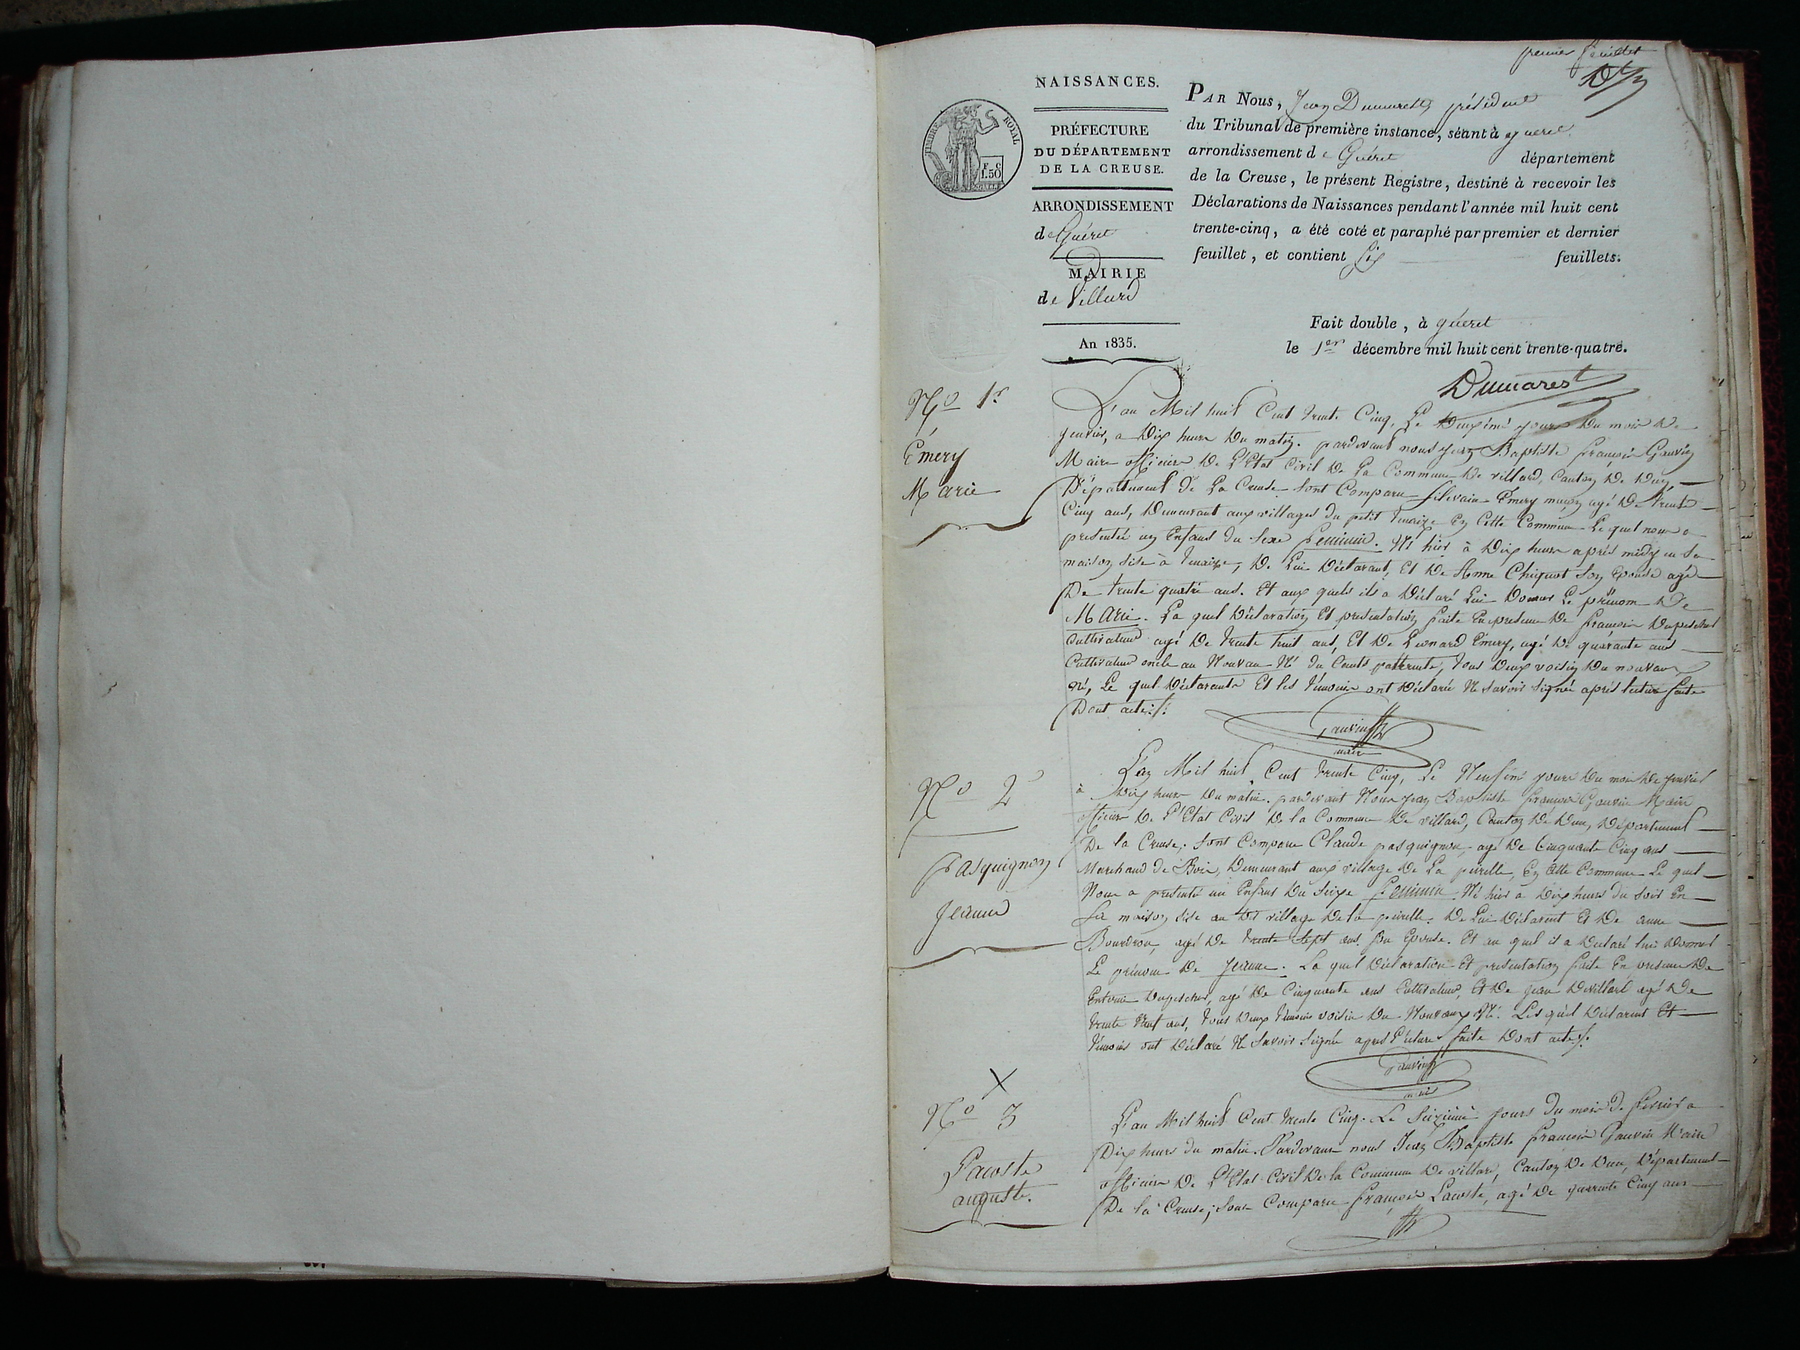 premier feuillet
NAISSANCES.
TIMBRE ROYAL
F. C.
1.50
PRÉFECTURE
DU DÉPARTEMENT
DE LA CREUSE.
ARRONDISSEMENT
de Guéret
MAIRIE
de Villard
An 1835.
PAR Nous, Jean Dumarest, président
du Tribunal de première instance, séant à guéret
arrondissement de Guéret département
de la Creuse, le présent Registre, destiné à recevoir les
Déclarations de Naissances pendant l'année mil huit cent
trente-cinq, a été coté et paraphé par premier et dernier
feuillet, et contient six feuillets.
Fait double, à guéret
le 1er décembre mil huit cent trente-quatre.
Dumarest
No 1er
Émery
Marie
L'an Mil huit Cent trente Cinq, Le Deuxième jours Du mois De
janvier, a Dix heure Du matin. pardevant nous jean Baptiste françois Gauvin
Maire officier De L'Etat Civil De La Commune De villard, Canton De Dun,
Département De La Creuse Sont Comparu Silvain Émery maçon agé De trente
Cinq ans, Demeurant aux villages du petit En Cette Commune Le quel nous a
presentée un Enfant du Sexe feminin. Né hier à Dix heure après midy en Sa
maison Sise à De Lui Déclarant, Et De Anne Son Epouse agé
De trente quatre ans. Et aux quels ils a Déclaré Lui Donner Le prénom De
Marie. La quel Déclaration Et presentation faite En presence De françois Dupeschot
Cultivateur agé De trente huit ans, Et De Leonard Émery, agé De quarante ans
Cultivateur oncle au Nouveau Né Du Couté patternele, tous Deux voisin Du nouveau
né, Le quel Déclarants Et Les témoins ont Déclaré Ne savoir Signée après lecture faite
Dont acte.
Gauvin
maire
No 2
Pasquignon
Jeanne
L'an Mil huit Cent trente Cinq, Le Neufime jours Du mois De janvier
à Dix heure Du matin. pardevant Nous jean Baptiste françois Gauvin Maire
officier De L'Etat Civil De la Commune De villard, Canton De Dun, Département
De la Creuse. Sont Comparu Claude pasquignon, agé De Cinquante Cinq ans
Marchand de Bois, Demeurant aux village De La En Cette Commune Le quel
Nous a presenté un Enfant Du Seixe feminin Né hier a Dix heure du Soir En
Sa maison, Sise au Dit village De la De Lui Déclarent Et De anne
agé De trente Sept ans Son Epouse. Et au quel il a Déclaré lui Donner
Le prénom De Jeanne. La quel Déclaration Et presentation faite En presence De
Entoine Dupeschot, agé De Cinquante ans Cultivateur, Et De Jean Devillard agé De
trente Neuf ans, tous Deux témoins voisin Du Nouveaux Né. Les quel Déclarent Et
témoins ont Déclaré Ne Savoir Signée après L'ecture faite Dont acte.
Gauvin
maire
X
No 3
Lacoste
auguste.
L'an Mil huit Cent trente Cinq. Le Seizième jours Du mois De fevrier a
Dix heurs du matin. Pardevant nous Jean Baptiste francois Gauvin Maire
officier De L'Etat Civil De la Commune De villard, Canton De Dun, Département
De la Creuse; Sont Comparu françois Lacoste, agé De quarante Cinq ans